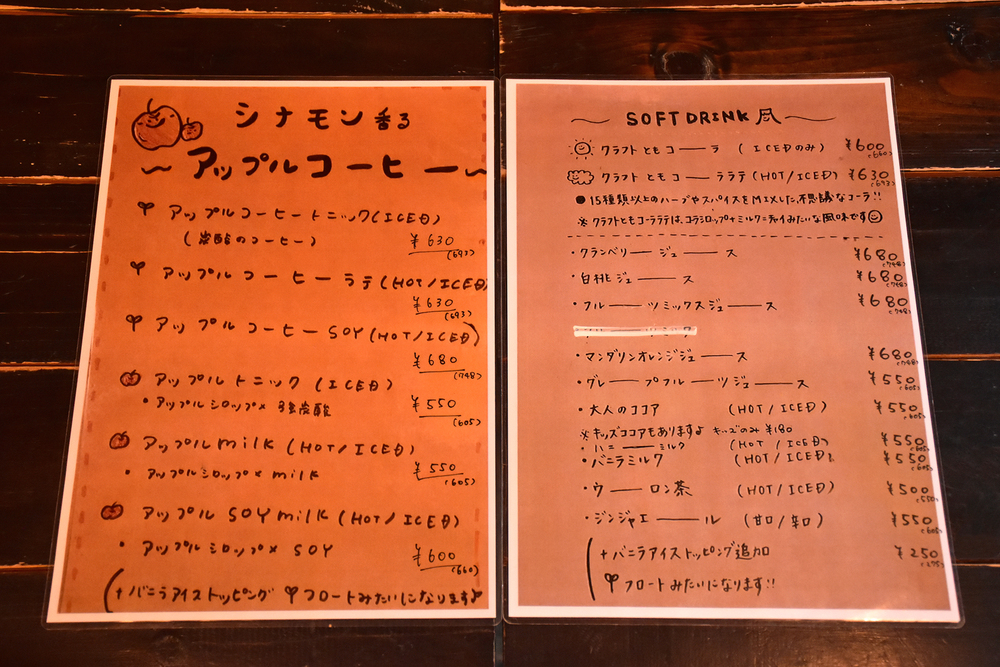 シナモン香る
〜アップルコーヒー〜
アップルコーヒートニック(ICED)
(炭酸のコーヒー)
¥630
(693)
アップルコーヒーラテ(HOT/ICED)
¥630
(693)
アップルコーヒーSOY(HOT/ICED)
¥680
(748)
アップルトニック(ICED)
・アップルシロップ×強炭酸
¥550
(605)
アップルmilk(HOT/ICED)
・アップルシロップ×milk
¥550
(605)
アップルSOYmilk(HOT/ICED)
・アップルシロップ×SOY
¥600
(660)
(+バニラアイストッピング フロートみたいになります♪
〜SOFT DRINK 風〜
クラフトともコーラ (ICEDのみ) ¥600
(660)
クラフトともコーララテ(HOT/ICED) ¥630
(693)
●15種類以上のハーブやスパイスをMIXした不思議なコーラ!!
※クラフトともコーララテは、コーラシロップ+ミルク=チャイみたいな風味です
・クランベリージュース ¥680
(748)
・白桃ジュース ¥680
(748)
・フルーツミックスジュース ¥680
(748)
・マンダリンオレンジジュース ¥680
(748)
・グレープフルーツジュース ¥550
(605)
・大人のココア (HOT/ICED) ¥550
(605)
※キッズココアもありますよ キッズのみ ¥180
・ハニーミルク (HOT/ICED) ¥550
(605)
・バニラミルク (HOT/ICED) ¥550
(605)
・ウーロン茶 (HOT/ICED) ¥500
(550)
・ジンジャエール (甘口/辛口) ¥550
(605)
+バニラアイストッピング追加 ¥250
(275)
フロートみたいになります!!